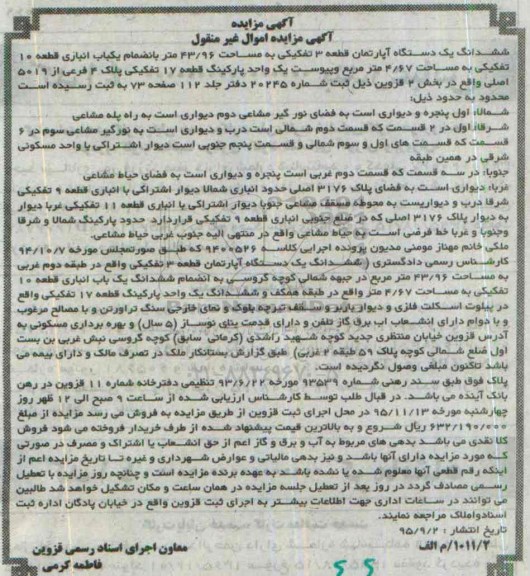 آگهی مزایده
آگهی مزایده اموال غیر منقول
ششدانگ یک دستگاه آپارتمان قطعه ۳ تفکیکی به مساحت ۴۳/۹۶ متر بانضمام یکباب انباری قطعه ۱۰
تفکیکی به مساحت ۴/۶۷ متر مربع وپیوست یک واحد پارکینگ قطعه ۱۷ تفکیکی پلاک ۴ فرعی از ۵۰۱۹
اصلی واقع در بخش ۲ قزوین ذیل ثبت شماره ۲۰۲۴۵ دفتر جلد ۱۱۲ صفحه ۷۳ به ثبت رسیده است
محدود به حدود ذیل:
شمالا: اول پنجره و دیواری است به فضای نور گیر مشاعی دوم دیواری است به راه پله مشاعی
شرقا: اول در ۲ قسمت که قسمت دوم شمالی است درب و دیواری است به نورگیر مشاعی سوم در ۶
قسمت که قسمت های اول و سوم شمالی و قسمت پنجم جنوبی است دیوار اشتراکی با واحد مسکونی
شرقی در همین طبقه
جنوبا: در سه قسمت که قسمت دوم غربی است پنجره و دیواری است به فضای حیاط مشاعی
غربا: دیواری است به فضای پلاک ۳۱۷۶ اصلی حدود انباری شمالا دیوار اشتراکی با انباری قطعه ۹ تفکیکی
شرقا درب و دیواریست به محوطه مسقف مشاعی جنوبا دیوار اشتراکی با انباری قطعه ۱۱ تفکیکی غربا دیوار
به دیوار پلاک ۳۱۷۶ اصلی که در ضلع جنوبی انباری قطعه ۹ تفکیکی قراردارد. حدود پارکینگ شمالا و شرقا
وجنوبا و غربا خط فرضی است به حیاط مشاعی واقع در منتهی الیه جنوب غربی حیاط مشاعی.
ملکی خانم مهناز مومنی مدیون پرونده اجرایی کلاسه ۹۴۰۰۵۲۶ که طبق صورتمجلس مورخه ۹۴/۱۰/۷
کارشناس رسمی دادگستری (ششدانگ یک دستگاه آپارتمان قطعه ۳ تفکیکی واقع در طبقه دوم غربی
به مساحت ۴۳/۹۶ متر مربع در جبهه شمالی کوچه گروسی به انضمام ششدانگ یک باب انباری قطعه ۱۰
تفکیکی به مساحت ۴/۶۷ متر واقع در طبقه همکف و ششدانگ یک واحد پارکینگ قطعه ۱۷ تفکیکی واقع
در پیلوت اسکلت فلزی و دیوار باربر و سقف تیرچه بلوک و نمای خارجی سنگ تراورتن و با مصالح مرغوب
و با دوام دارای انشعاب اب برق گاز تلفن و دارای قدمت بنای نوساز (۵ سال) و بهره برداری مسکونی به
آدرس قزوین خیابان منتظری جدید کوچه شهید راشدی (کرمانی سابق) کوچه گروسی نبش غربی بن بست
اول ضلع شمالی کوچه پلاک ۵۹ طبقه ۲ غربی) طبق گزارش بستانکار ملک در تصرف مالک و دارای بیمه می
باشد تاکنون مبلغی وصول نگردیده است.
پلاک فوق طبق سند رهنی شماره ۹۳۵۳۹ مورخه ۹۳/۶/۲۲ تنظیمی دفترخانه شماره ۱۱ قزوین در رهن
بانک آینده می باشد. در قبال طلب توسط کارشناس ارزیابی شده از ساعت ۹ صبح الی ۱۲ ظهر روز
چهارشنبه مورخه ۹۵/۱۱/۱۳ در محل اجرای ثبت قزوین از طریق مزایده به فروش می رسد مزایده از مبلغ
۶۳۲/۱۹۰/۰۰۰ ریال شروع و به بالاترین قیمت پیشنهاد شده از طرف خریدار فروخته می شود فروش
کلا نقدی می باشد بدهی های مربوط به آب و برق و گاز اعم از حق انشعاب یا اشتراک و مصرف در صورتی
که مورد مزایده دارای آنها باشد و نیز بدهی مالیاتی و عوارض شهرداری و غیره تا تاریخ مزایده اعم از
اینکه رقم قطعی آنها معلوم شده یا نشده باشد به عهده برنده مزایده است و چنانچه روز مزایده با تعطیل
رسمی مصادف گردد در روز بعد از تعطیل جلسه مزایده در همان ساعت و مکان تشکیل خواهد شد طالبین
می توانند در ساعات اداری جهت اطلاعات بیشتر به اجرای ثبت قزوین واقع در خیابان پادگان اداره ثبت
اسنادواملاک مراجعه نمایند.
تاریخ انتشار : ۹۵/۹/۲
۱۰۱۱/۲/م الف
معاون اجرای اسناد رسمی قزوین
فاطمه کرمی